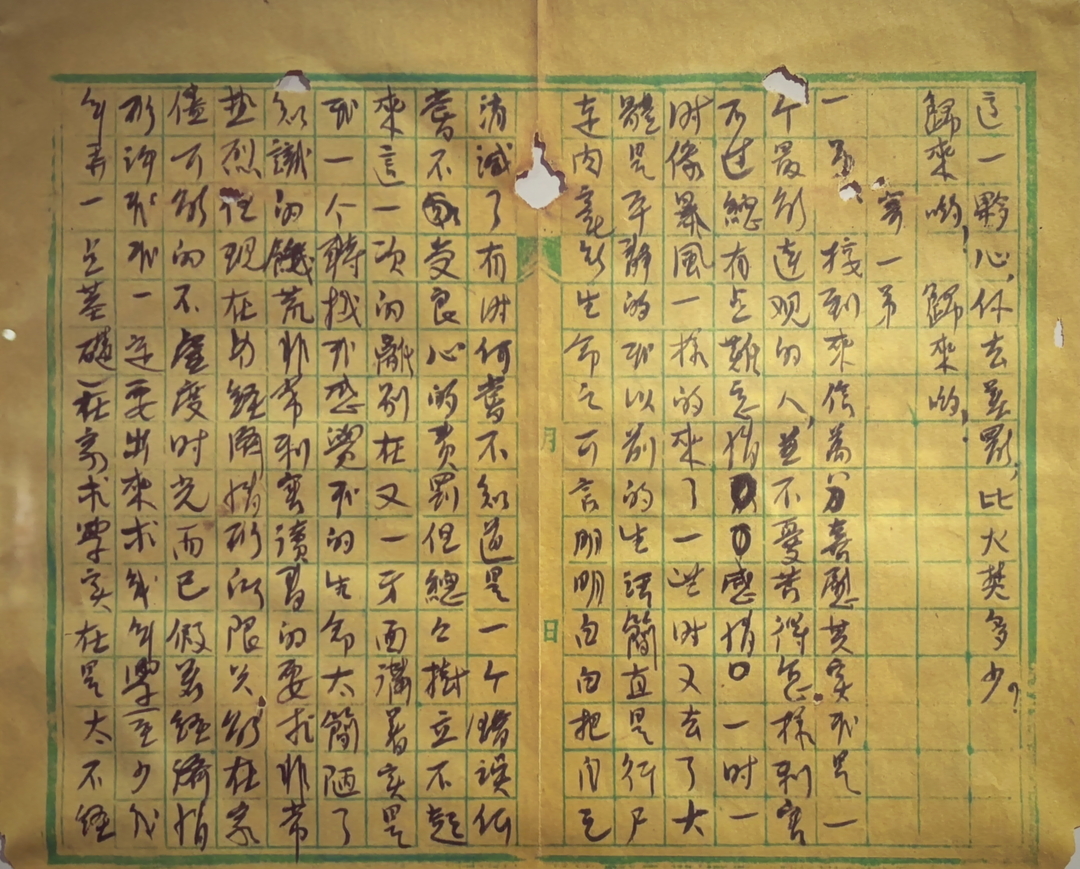 這一夥心，你去衰罷，比火焚多少？
歸來喲！ 歸來喲！
寄一弟
一 接到來信萬分喜慰其实我是一
个最能達观的人，並不憂苦得怎樣利害
不过總有点難忘情 感情 一时一
时像暴風一樣的來了一进时又去了大
體是平靜的我以前的生活簡直是行尸
走肉竟無生命之可言明明白白把自己
消滅了有时何嘗不知道是一个錯誤何
嘗不 受良心的责罰但總之樹立不起
來這一次的離别在又一方面講着实是
我一个轉找我感覺我的生命太簡陋了
知識的饑荒非常利害讀書的要求非常
热烈但现在为經濟情形所限只能在家
儘可能的不虛度时光而已假若經濟情
形许我我一定要出來求幾年學至少我
年弄一点基礎在家求學实在是太不經
月
日